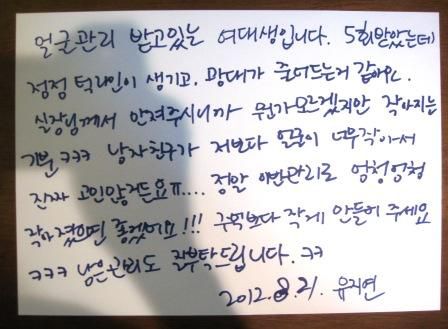 얼굴관리 받고있는 여대생입니다. 5회받았는데
점점 턱라인이 생기고. 광대가 줄어드는거 같아요.
실장님께서 만져주시니까 뭔가모르겠지만 작아지는
기분 ㅋㅋㅋ 남자친구가 저보다 얼굴이 너무작아서
진짜 고민이많거든요ㅠ.... 정말 이번관리로 엄청엄청
작아졌으면 좋겠어요!!! 주먹보다 작게 만들어 주세요
ㅋㅋㅋ 남은관리도 잘부탁드립니다. ㅋㅋ
2012. 8. 21. 유지연